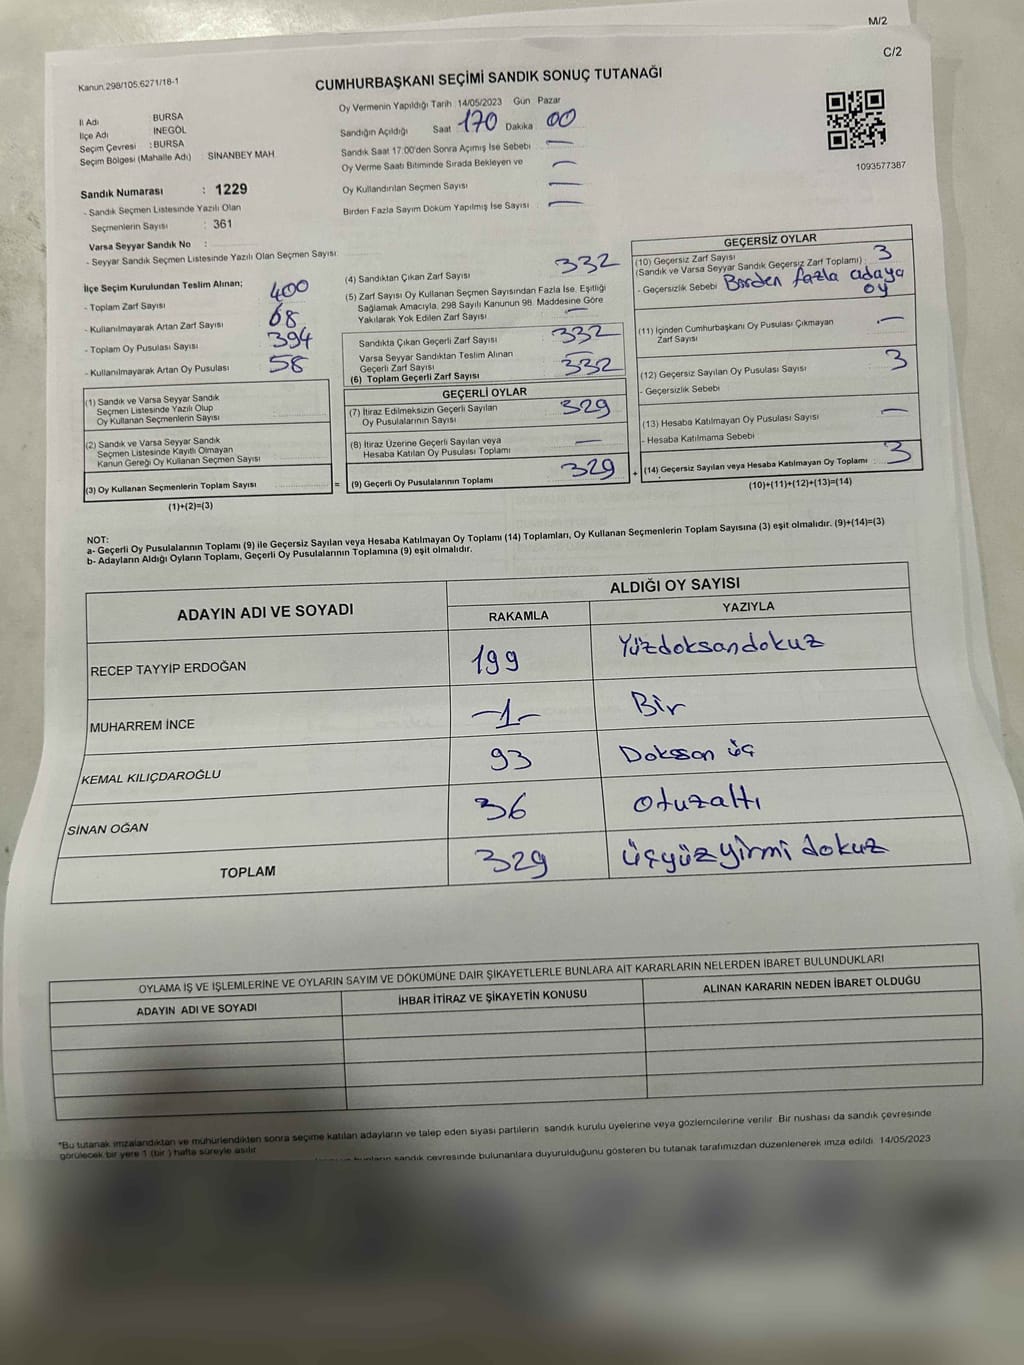 M/2
C/2
Kanun.298/105.6271/18-1
CUMHURBAŞKANI SEÇİMİ SANDIK SONUÇ TUTANAĞI
İl Adı : BURSA
İlçe Adı : İNEGÖL
Seçim Çevresi : BURSA
Seçim Bölgesi (Mahalle Adı) : SİNANBEY MAH
Sandık Numarası : 1229
- Sandık Seçmen Listesinde Yazılı Olan
Seçmenlerin Sayısı : 361
Varsa Seyyar Sandık No :
- Seyyar Sandık Seçmen Listesinde Yazılı Olan Seçmen Sayısı:
Oy Vermenin Yapıldığı Tarih 14/05/2023 Gün Pazar
Sandığın Açıldığı Saat 170 Dakika 00
Sandık Saat 17:00'den Sonra Açımış İse Sebebi —
Oy Verme Saati Bitiminde Sırada Bekleyen ve —
Oy Kullandırılan Seçmen Sayısı —
Birden Fazla Sayım Döküm Yapılmış İse Sayısı —
1093577387
İlçe Seçim Kurulundan Teslim Alınan;
- Toplam Zarf Sayısı 400
- Kullanılmayarak Artan Zarf Sayısı 68
- Toplam Oy Pusulası Sayısı 394
- Kullanılmayarak Artan Oy Pusulası 58
(1) Sandık ve Varsa Seyyar Sandık
Seçmen Listesinde Yazılı Olup
Oy Kullanan Seçmenlerin Sayısı
(2) Sandık ve Varsa Seyyar Sandık
Seçmen Listesinde Kayıtlı Olmayan
Kanun Gereği Oy Kullanan Seçmen Sayısı
(3) Oy Kullanan Seçmenlerin Toplam Sayısı
(1)+(2)=(3)
(4) Sandıktan Çıkan Zarf Sayısı 332
(5) Zarf Sayısı Oy Kullanan Seçmen Sayısından Fazla İse, Eşitliği
Sağlamak Amacıyla, 298 Sayılı Kanunun 98. Maddesine Göre
Yakılarak Yok Edilen Zarf Sayısı —
Sandıkta Çıkan Geçerli Zarf Sayısı 332
Varsa Seyyar Sandıktan Teslim Alınan
Geçerli Zarf Sayısı —
(6) Toplam Geçerli Zarf Sayısı 332
GEÇERLİ OYLAR
(7) İtiraz Edilmeksizin Geçerli Sayılan
Oy Pusulalarının Sayısı 329
(8) İtiraz Üzerine Geçerli Sayılan veya
Hesaba Katılan Oy Pusulası Toplamı —
= (9) Geçerli Oy Pusulalarının Toplamı 329
GEÇERSİZ OYLAR
(10) Geçersiz Zarf Sayısı 3
(Sandık ve Varsa Seyyar Sandık Geçersiz Zarf Toplamı)
- Geçersizlik Sebebi Birden fazla adaya
oy
(11) İçinden Cumhurbaşkanı Oy Pusulası Çıkmayan
Zarf Sayısı —
(12) Geçersiz Sayılan Oy Pusulası Sayısı 3
- Geçersizlik Sebebi
(13) Hesaba Katılmayan Oy Pusulası Sayısı —
- Hesaba Katılmama Sebebi
+ (14) Geçersiz Sayılan veya Hesaba Katılmayan Oy Toplamı : 3
(10)+(11)+(12)+(13)=(14)
NOT:
a- Geçerli Oy Pusulalarının Toplamı (9) ile Geçersiz Sayılan veya Hesaba Katılmayan Oy Toplamı (14) Toplamları, Oy Kullanan Seçmenlerin Toplam Sayısına (3) eşit olmalıdır. (9)+(14)=(3)
b- Adayların Aldığı Oyların Toplamı, Geçerli Oy Pusulalarının Toplamına (9) eşit olmalıdır.
ADAYIN ADI VE SOYADI
ALDIĞI OY SAYISI
RAKAMLA YAZIYLA
RECEP TAYYİP ERDOĞAN 199 Yüzdoksandokuz
MUHARREM İNCE —1— Bir
KEMAL KILIÇDAROĞLU 93 Doksan üç
SİNAN OĞAN 36 otuzaltı
TOPLAM 329 üçyüzyirmi dokuz
OYLAMA İŞ VE İŞLEMLERİNE VE OYLARIN SAYIM VE DÖKÜMÜNE DAİR ŞİKAYETLERLE BUNLARA AİT KARARLARIN NELERDEN İBARET BULUNDUKLARI
ADAYIN ADI VE SOYADI İHBAR İTİRAZ VE ŞİKAYETİN KONUSU ALINAN KARARIN NEDEN İBARET OLDUĞU
*Bu tutanak imzalandıktan ve mühürlendikten sonra seçime katılan adayların ve talep eden siyasi partilerin sandık kurulu üyelerine veya gözlemcilerine verilir Bir nüshası da sandık çevresinde
görülecek bir yere 1 (bir) hafta süreyle asılır
bunların sandık çevresinde bulunanlara duyurulduğunu gösteren bu tutanak tarafımızdan düzenlenerek imza edildi 14/05/2023